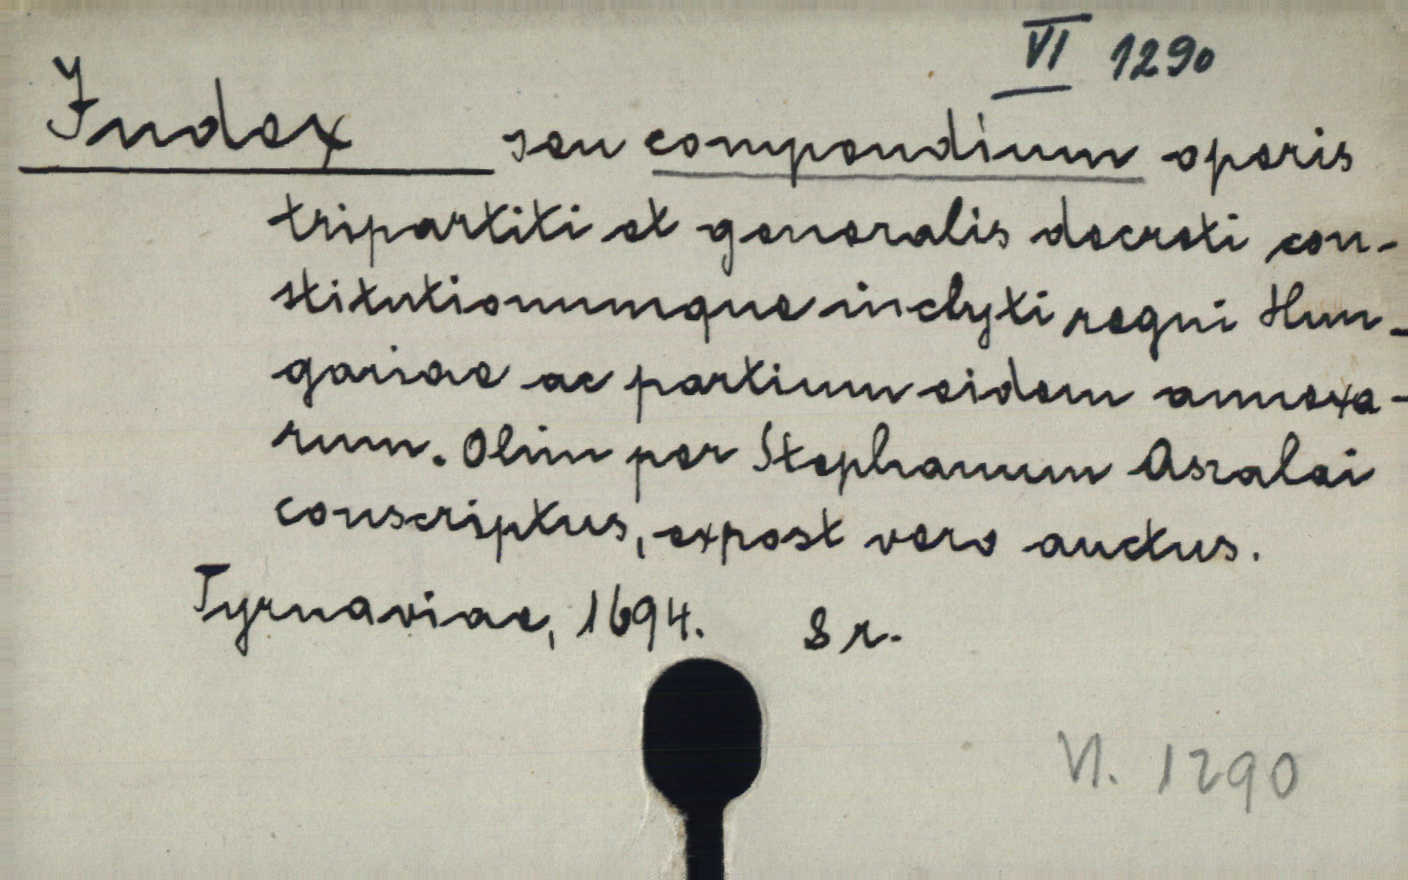 VI 1290
Index seu compendium operis
tripartiti et generalis decreti con-
stitutionumque inclyti regni Hun-
gariae ac partium eidem annexa-
rum. Olim per Stephanum Aszalai
conscriptus, expost vero auctus.
Tyrnaviae, 1694. 8 r.
VI. 1290